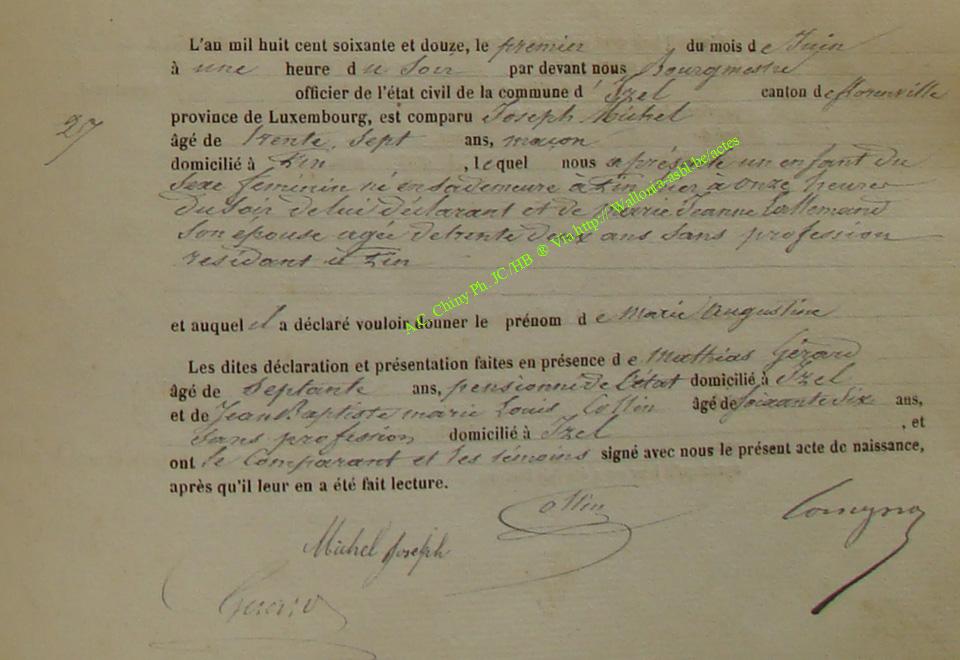 L'an mil huit cent soixante et douze, le premier du mois de Juin
à une heure du Soir par devant nous Bourgmestre
officier de l'état civil de la commune d' Izel canton de florenville
27
province de Luxembourg, est comparu Joseph Michel
âgé de trente Sept ans, maçon
domicilié à Pin , lequel nous a présenté un enfant du
Sexe féminin né en sa demeure à Pin hier à onze heures
du soir de lui déclarant et de Marie Jeanne Lallemand
son épouse agée de trente deux ans Sans profession
résidant à Pin
et auquel il a déclaré vouloir donner le prénom de Marie Augustine
Les dites déclaration et présentation faites en présence de Mathias Gérard
âgé de Septante ans, pensionné de l'état domicilié à Izel
et de Jean Baptiste marie Louis Collin âgé de Soixante Six ans,
Sans profession domicilié à Izel , et
ont le Comparant et les témoins signé avec nous le présent acte de naissance,
après qu'il leur en a été fait lecture.
Collin
Michel Joseph
Gérard
A.C. Chiny Ph. JC/HB ® Via http://Wallonia-asbl.be/actes